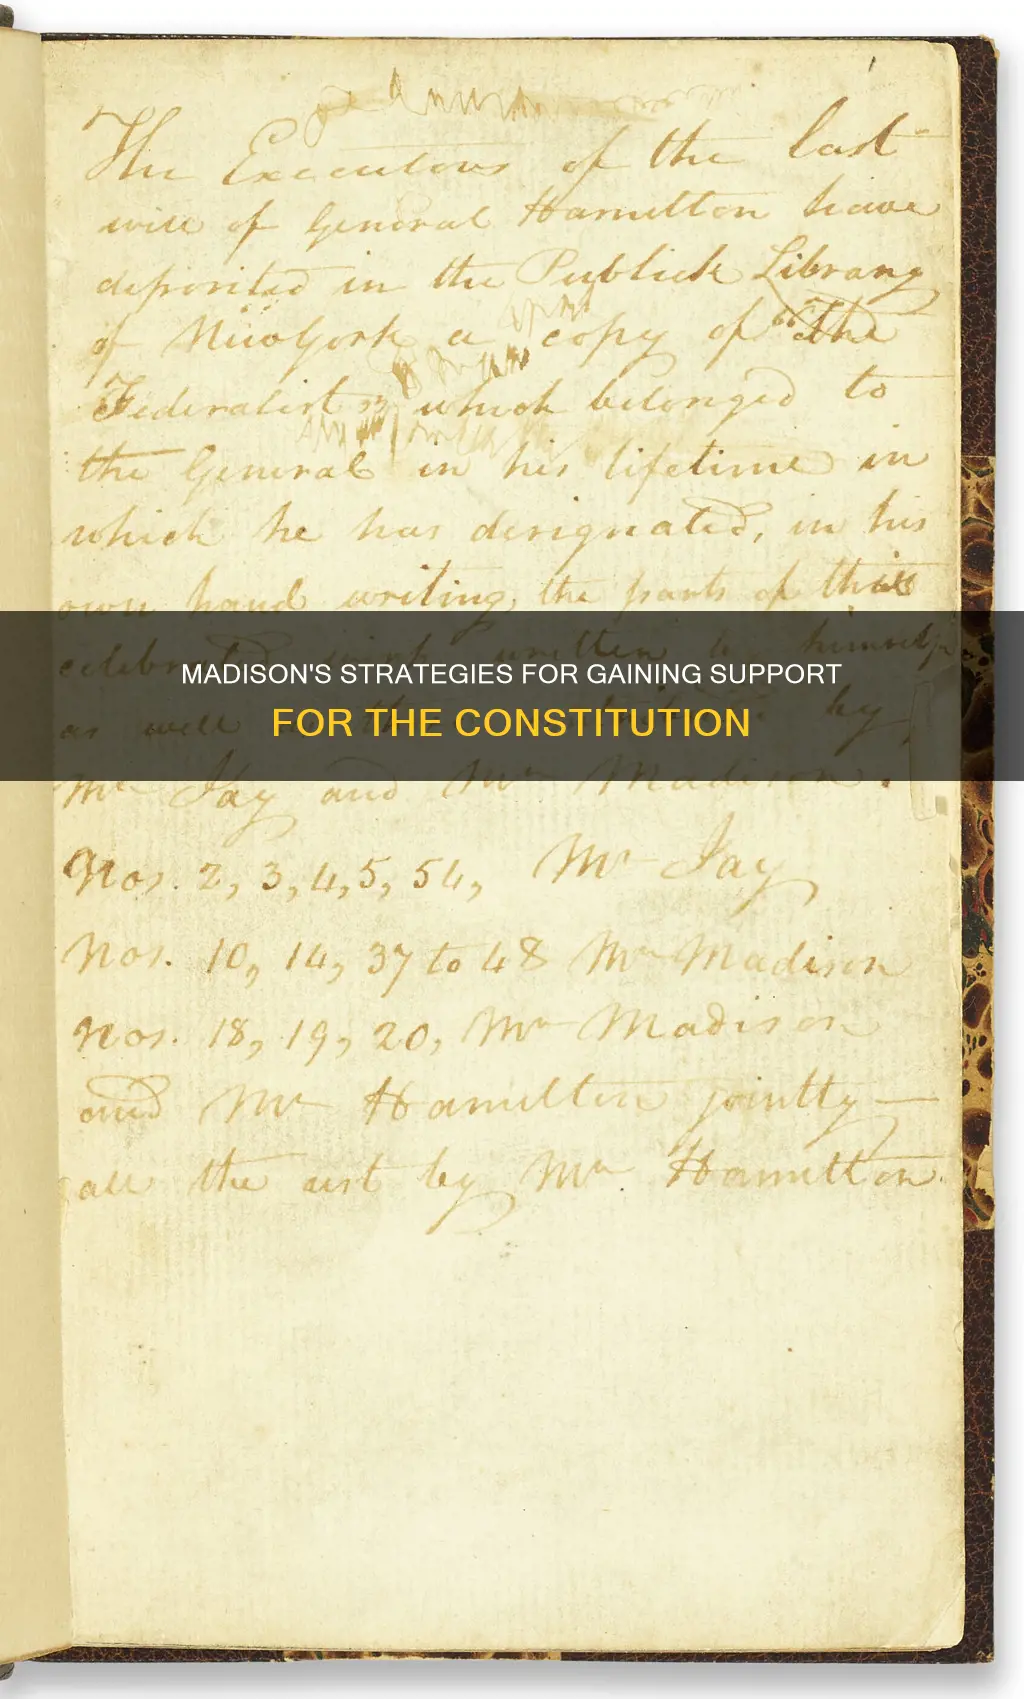 The Executors of the last
will of General Hamilton have
deposited in the Publick Library
of New York a copy of "The
Federalist" which belonged to
the General in his lifetime in
which he has designated, in his
own hand writing, the parts of that
celebrated work written by himself,
MADISON'S STRATEGIES FOR GAINING SUPPORT
FOR THE CONSTITUTION
as well by
Mr Jay and Mr Madison.
Nos. 2, 3, 4, 5, 54, Mr Jay
Nos. 10, 14, 37 to 48 Mr Madison
Nos. 18, 19, 20, Mr Madison
and Mr Hamilton jointly—
all the rest by Mr Hamilton.